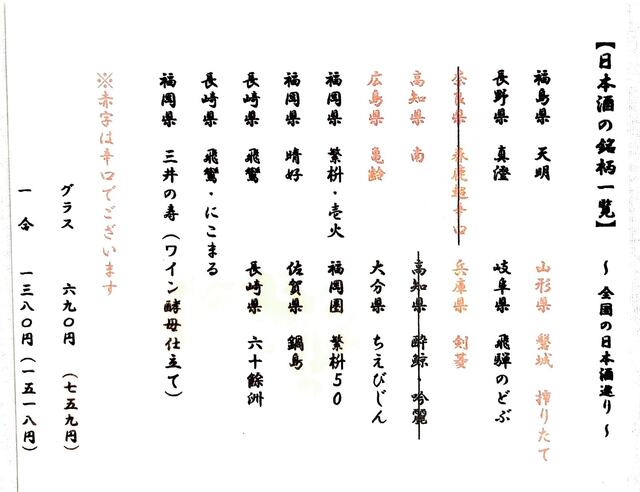 【日本酒の銘柄一覧】 ～全国の日本酒巡り～
福島県 天明 山形県 磐城 搾りたて
長野県 真澄 岐阜県 飛騨のどぶ
奈良県 春鹿超辛口 兵庫県 剣菱
高知県 南 高知県 酔鯨・吟麗
広島県 亀齢 大分県 ちえびじん
福岡県 繁桝・壱火 福岡圏 繁桝50
福岡県 晴好 佐賀県 鍋島
長崎県 飛鸞 長崎県 六十餘洲
長崎県 飛鸞・にこまる
福岡県 三井の寿(ワイン酵母仕立て)
※赤字は辛口でございます
グラス 六九〇円 (七五九円)
一合 一三八〇円(一五一八円)